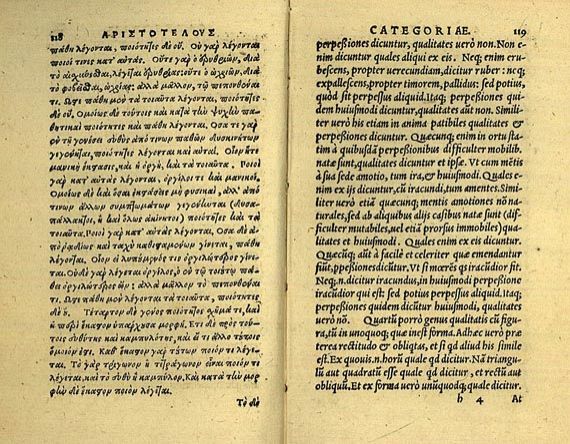 118 ΑΡΙΣΤΟΤΕΛΟΥΣ
πάθη λέγονται, ποιότητες δὲ οὔ. Οὐ γὰρ λέγονται
ποιοί τινες κατ' αὐτάς. Οὔτε γὰρ ὁ ἐρυθριῶν, διὰ
τὸ αἰσχύνεσθαι, λέγεται ἐρυθρίας: οὔτε ὁ ὠχριῶν, διὰ
τὸ φοβεῖσθαι, ὠχρίας: ἀλλὰ μᾶλλον, τῷ πεπονθέναι
τι. Ὥστε πάθη μὲν τὰ τοιαῦτα λέγονται, ποιότητες
δὲ οὔ. Ὁμοίως δὲ τούτοις καὶ κατὰ τὴν ψυχὴν πα
θητικαὶ ποιότητες καὶ πάθη λέγονται. Ὅσα τε γὰρ
τῇ γενέσει εὐθὺς ἀπό τινων παθῶν δυσκινήτων
γεγένηται, ποιότητες λέγονται καὶ αὗται. Οἷον ἥτε
μανικὴ ἔκστασις, καὶ ἡ ὀργὴ, καὶ τὰ τοιαῦτα. Ποιοὶ
γὰρ κατ' αὐτὰς λέγονται, ὀργίλοι τε καὶ μανικοί.
Ὁμοίως δὲ καὶ ὅσαι ἐκστάσεις μὴ φυσικαὶ, ἀλλ' ἀπό
τινων ἄλλων συμπτωμάτων γεγόνασι (δυσα-
πάλλακτοι, ἢ καὶ ὅλως ἀκίνητοι) ποιότητες καὶ τὰ
τοιαῦτα. Ποιοὶ γὰρ κατ' αὐτὰς λέγονται. Ὅσα δὲ ἀ-
πὸ ῥαδίως καὶ ταχὺ καθισταμένων γίνεται, πάθη
λέγονται. Οἷον εἰ λυπούμενός τις ὀργιλώτερος γίνε-
ται. Οὐδὲ γὰρ λέγεται ὀργίλος, ὁ ἐν τῷ τοιούτῳ πά-
θει ὀργιλώτερος ὤν: ἀλλὰ μᾶλλον τι πεπονθέναι.
Ὥστε πάθη μὲν λέγονται τὰ τοιαῦτα, ποιότητες
δὲ οὔ. Τέταρτον δὲ γένος ποιότητος σχῆμά τε, καὶ
ἡ περὶ ἕκαστον ὑπάρχουσα μορφή. Ἔτι δὲ πρὸς τού-
τοις εὐθύτης καὶ καμπυλότης, καὶ εἴ τι ἄλλο τούτοις
ὅμοιόν ἐστι. Καθ' ἕκαστον γὰρ τούτων ποιόν τι λέγε-
ται. Τὸ γὰρ τρίγωνον ἢ τετράγωνον εἶναι ποιόν τι
λέγεται, καὶ τὸ εὐθὺ ἢ καμπύλον. Καὶ κατὰ τὴν μορ-
φὴν δὲ ἕκαστον ποιόν τι λέγεται.
Τὸ δὲ
CATEGORIAE. 119
perpeßiones dicuntur, qualitates uerò non. Non e-
nim dicuntur quales aliqui ex eis. Neq; enim eru-
bescens, propter uerecundiam, dicitur ruber: neq;
expallescens, propter timorem, pallidus: sed potius,
quòd sit perpessus aliquid. Itaq; perpeßiones qui-
dem huiusmodi dicuntur, qualitates aut non. Simili-
ter uerò his etiam in anima patibiles qualitates &
perpeßiones dicuntur. Quæcunq; enim in ortu sta-
tim à quibusdā perpeßionibus difficulter mobilib.
natæ sunt, qualitates dicuntur et ipsæ. Vt cum mētis
à sua sede amotio, tum ira, & huiusmodi. Quales e-
nim ex ijs dicuntur, cū iracundi, tum amentes. Simi-
liter uerò etiā quæcunq; mentis amotiones nō na-
turales, sed ab aliquibus alijs casibus natæ sunt (dif-
ficulter mutabiles, uel etiā prorsus immobiles) qua-
litates et huiusmodi. Quales enim ex eis dicuntur.
Quæcūq; aūt à facile et celeriter quæ emendantur
fiūt, ppeßiones dicūtur. Vt si mœrēs q̄s iracūdior fit.
Neq; n. dicitur iracundus, in huiusmodi perpeßione
iracūdior qui est: sed potius perpessus aliquid. Itaq;
perpeßiones quidem dicūtur huiusmodi, qualitates
uerò nō. Quartū porrò genus qualitatis cū figu-
ra, tū in unoquoq; quæ inest forma. Adhæc uerò præ
terea rectitudo & obliqtas, et si qd aliud his simile
est. Ex quouis. n. horū quale qd dicitur. Nā triangu-
lū aut quadratū esse quale qd dicitur, et rectū aut
obliquū. Et ex forma uerò unūquodq; quale dicitur.
h 4 At